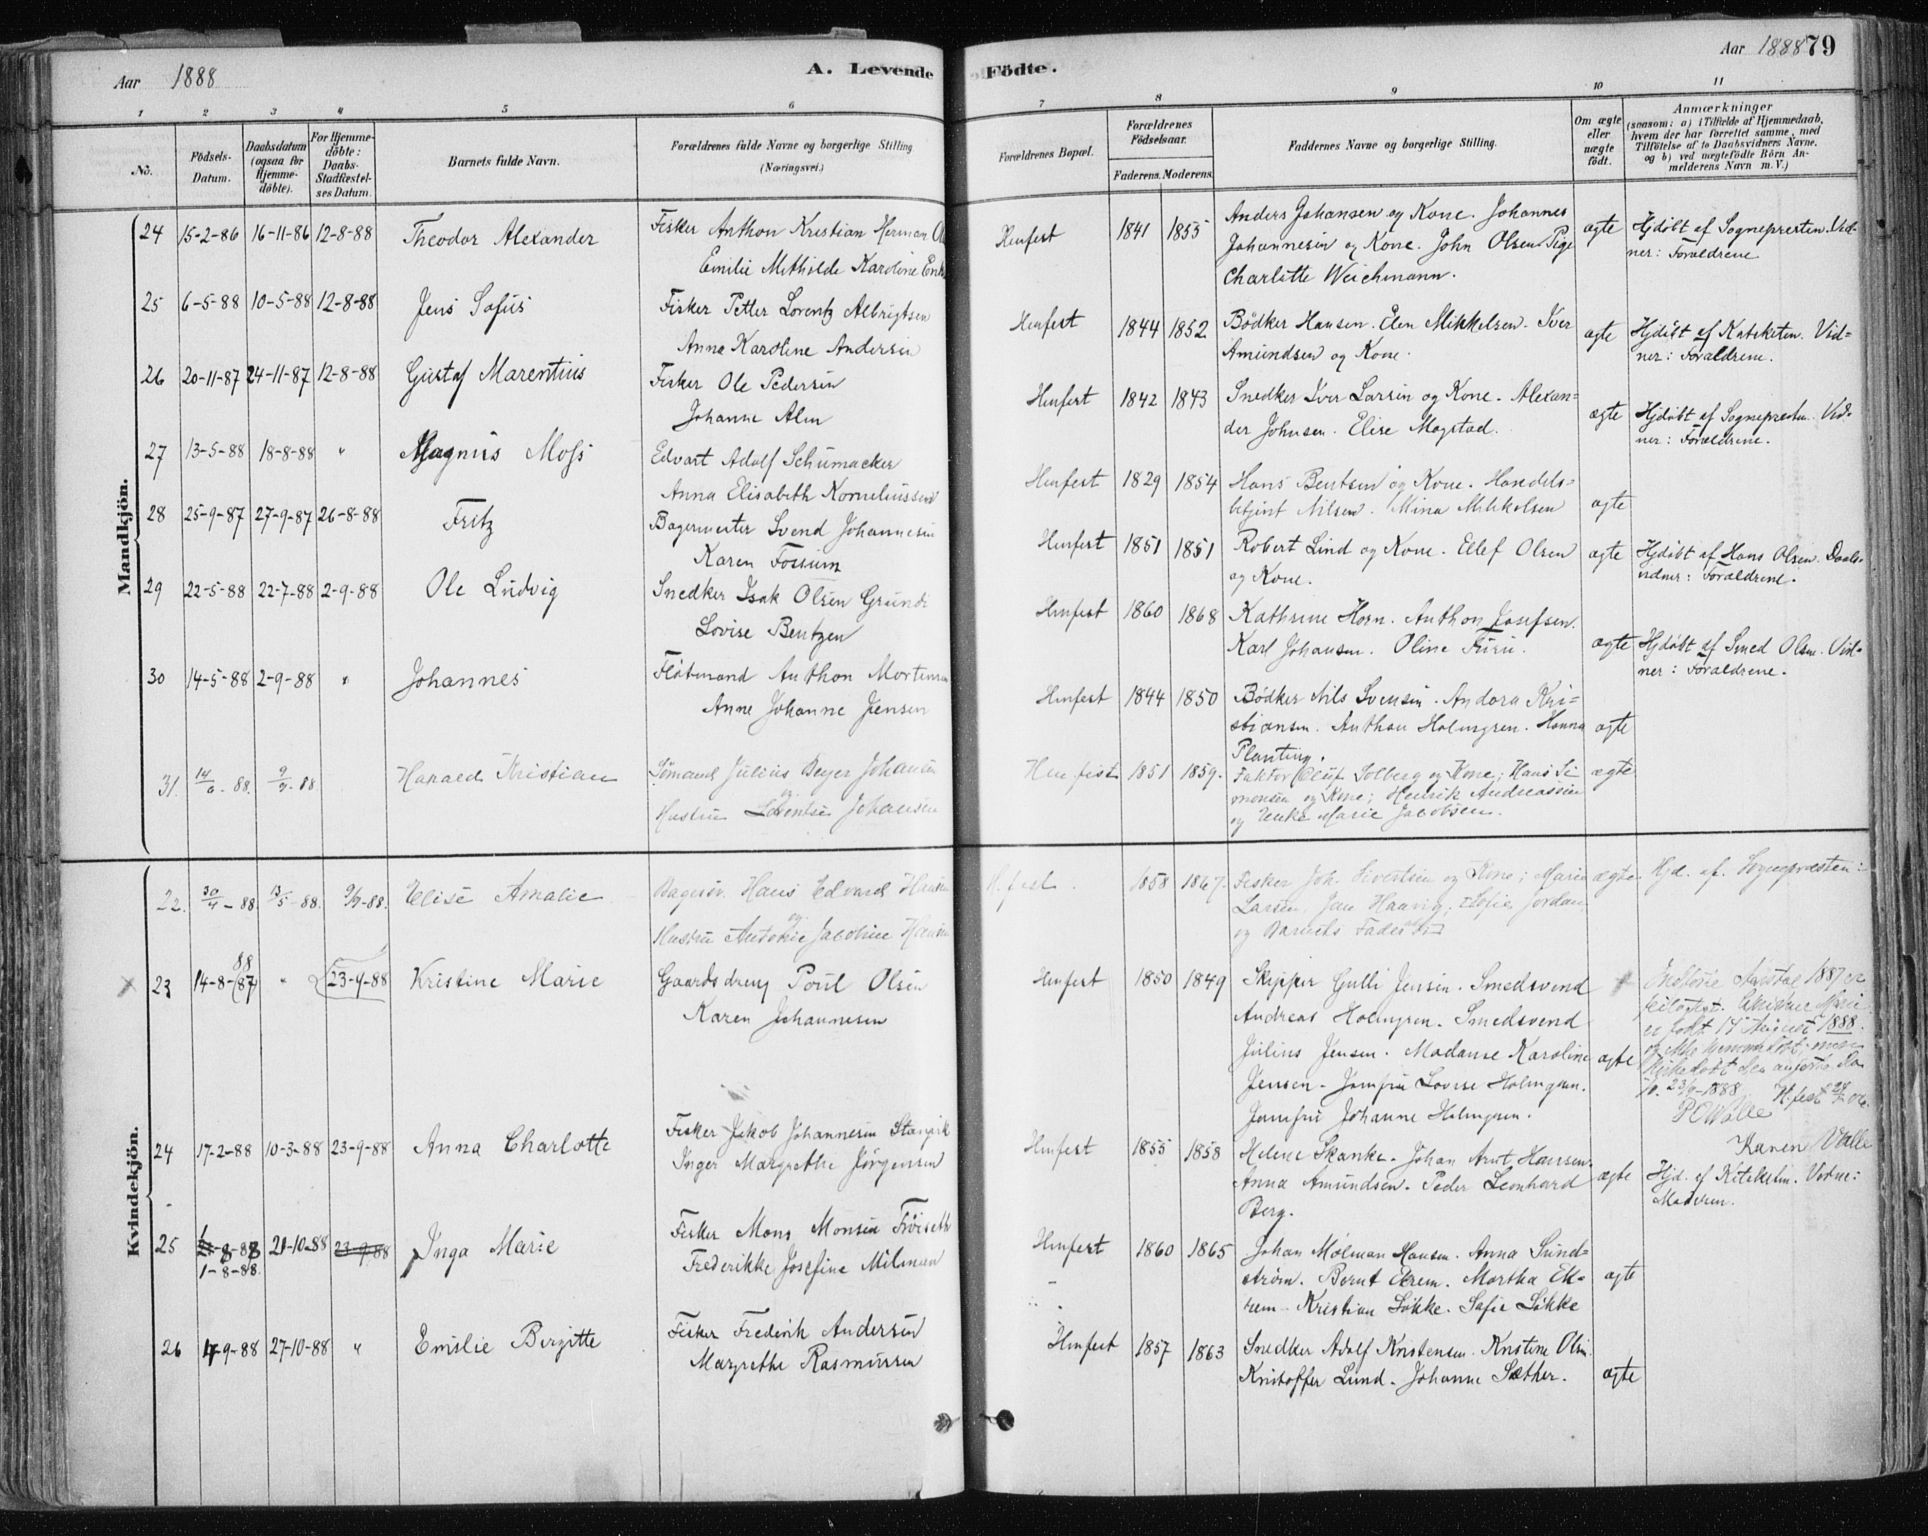 Aar 1888
A. Levende Fødte.
Aar 1888 79
1 2 3 4 5 6 7 8 9 10 11
No.
Fødsels-Datum.
Daabsdatum (ogsaa for Hjemmedøbte).
For Hjemmedøbte: Daabs-Stadfæstelses Datum.
Barnets fulde Navn.
Forældrenes fulde Navne og borgerlige Stilling
(Næringsvei.)
Forældrenes Bopæl.
Forældrenes Fødselsaar.
Faderens. Moderens.
Faddernes Navne og borgerlige Stilling.
Om ægte eller uægte født.
Anmærkninger
(saasom: a) i Tilfælde af Hjemmedaab,
hvem der har forrettet samme, med
Tilføielse af to Daabsvidners Navne.
og b) ved uægtefødte Børn Anmelderens Navn m. V.)
Mandkjön.
24 15-2-86 16-11-86 12-8-88 Theodor Alexander Fisker Anthon Kristian Herman
Emilie Mathilde Karoline
Hmfest 1841 1855 Anders Johansen og Kone. Johannes
Johannesen og Kone. John Olsen. Pige
Charlotte Weichmann.
ægte Hjdøbt af Sognepresten. Vidner: Forældrene
25 6-5-88 10-5-88 12-8-88 Jens Sofus Fisker Petter Lorentz Albrigtsen
Anna Karoline Andersen
Hmfest 1844 1852 Bødker Hansen. Elen Mikkelsen. Iver
Amundsen og Kone.
ægte Hjdøbt af Kateketen. Vidner: Forældrene.
26 20-11-87 24-11-87 12-8-88 Gustaf Marentius Fisker Ole Pedersen
Johanne Alm
Hmfest 1842 1843 Snedker Iver Larsen og Kone. Alexander Johnsen. Elise Mogstad.
ægte Hjdøbt af Sognepresten. Vidner: Forældrene.
27 13-5-88 18-8-88 " Magnus Moss Edvart Adolf Schumacker
Anna Elisabeth Korneliussen
Hmfest 1829 1854 Hans Bentsen og Kone. Handelsbetjent Nilsen. Mina Mikkelsen
ægte
28 25-9-87 27-9-87 26-8-88 Fritz Bagermester Svend Johannesen
Karen Fossum
Hmfest 1851 1851 Robert Lind og Kone. Ellef Olsen
og Kone.
ægte Hjdøbt af Hans Olsen. Daabsvidner: Forældrene.
29 22-5-88 22-7-88 2-9-88 Ole Ludvig Snedker Isak Olsen Grundi
Lovise Bentzen
Hmfest 1860 1868 Kathrine Horn. Anthon Josefsen.
Karl Johansen. Oline Furu.
ægte Hjdøbt af Smed Olsen. Vidner: Forældrene.
30 14-5-88 2-9-88 " Johannes Fløtmand Anthon Mortensen
Anne Johanne Jensen
Hmfest 1844 1850 Bødker Nils Svensen. Andora Kristiansen. Anthon Holmgren. Hanna
Planting.
ægte
31. 88. 9/9-88 Harald Kristian Sømand Julius Beyer Johansen
og
Hustru Lorentse Johansen
Hmfest 1851 1859. Faktor Oluf Solberg og Kone; Hans Simonsen og Kone; Henrik Andreassen
og Enke Marie Jacobsen.
ægte
Kvindekjön.
22. 30/4-88 13/5-88. 9/9-88. Elise Amalie Hans Edvard Hansen
og
Hustru Antonie Jacobine Hansen
H.fest. 1858 1867. Fisker Joh. Sivertsen og Kone; Marie
Larsen, Jan Haavig; Sofie Jordan
og Barnets Fader
ægte Hjd. af. Sognepræsten:
23 14-8-(87) 88 " 23-9-88 Kristine Marie Gaardsdreng Poul Olsen
Karen Johannesen
Hmfest 1850 1849 Skipper Gulli Jensen. Smedsvend
Andreas Holmgren. Smedsvend
Julius Jensen. Madame Karoline
Jensen. Jomfru Lovise Holmgren.
Jomfru Johanne Holmgren.
ægte Aarstal 1887 er
feilagtigt. Kristine Marie
er født 14 August 1888.
og ikke hjemmedøbt; men
kirkedøbt den anførte Dag
23/9-1888 H.fest
P C Valle
Karen Valle
24 17-2-88 10-3-88 23-9-88 Anna Charlotte Fisker Jakob Johannesen
Inger Margrethe Jørgensen
Hmfest 1855 1858 Helene Skanke. Johan Arnt Hansen.
Anna Amundsen. Peder Leonhard
Berg.
ægte Hjd. af Kateketen. Vidne:
Moderen.
25 1-8-88. 21-10-88 23-9-88 Inga Marie Fisker Mons Monsen Frøiseth
Frederikke Josefine Milman
Hmfest 1860 1865 Johan Molman Hansen. Anna Sundstrøm. Bernt Ekrem. Martha Ekrem. Kristian Løkke. Sofie Løkke
ægte
26 4-9-88 27-10-88 " Emilie Birgitte Fisker Fredrik Andersen
Margrethe Rasmussen
Hmfest 1857 1863 Snedker Adolf Kristensen. Kristine Olsen
Kristoffer Lund. Johanne Sæther.
ægte